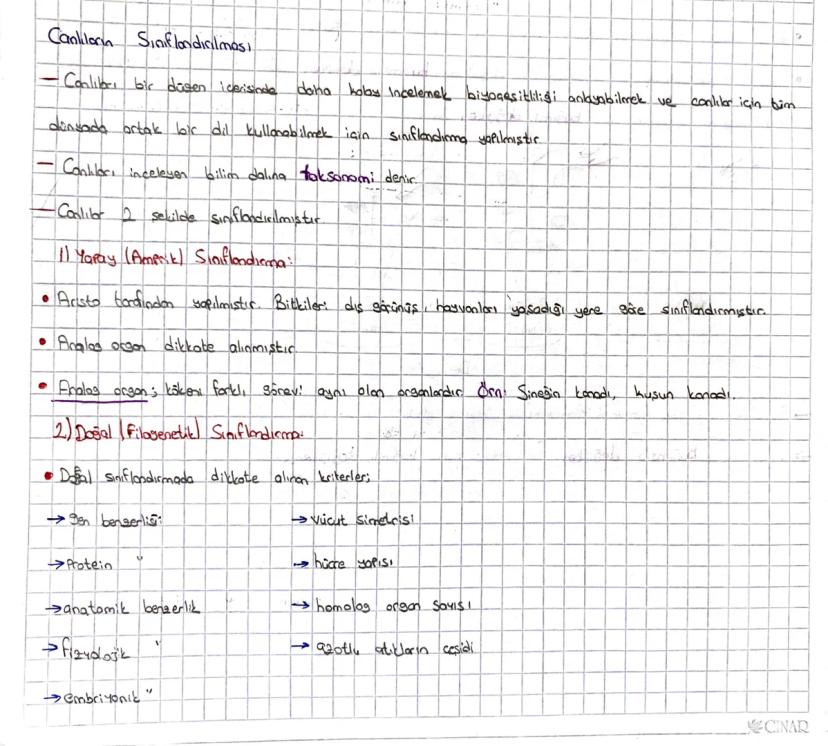 Canlıların Sınıflandırılması
— Canlıları bir düzen içerisinde daha kolay incelemek biyoçeşitliliği anlayabilmek ve canlılar için tüm
dünyada ortak bir dil kullanabilmek için sınıflandırma yapılmıştır
— Canlıları inceleyen bilim dalına taksonomi denir.
— Canlılar 2 şekilde sınıflandırılmıştır
1) Yapay (Amprik) Sınıflandırma:
• Aristo tarafından yapılmıştır. Bitkileri dış görünüş, hayvanları yaşadığı yere göre sınıflandırmıştır.
• Analog organ dikkate alınmıştır
• Analog organ; kökeni farklı, görevi aynı olan organlardır Örn: Sineğin kanadı, kuşun kanadı.
2) Doğal (Filogenetik) Sınıflandırma:
• Doğal sınıflandırmada dikkate alınan kriterler;
→ gen benzerliği → vücut simetrisi
→ Protein " → hücre yapısı
→ anatomik benzerlik → homolog organ sayısı
→ fizyolojik " → azotlu atıkların çeşidi
→ embriyonik "
ÇINAR